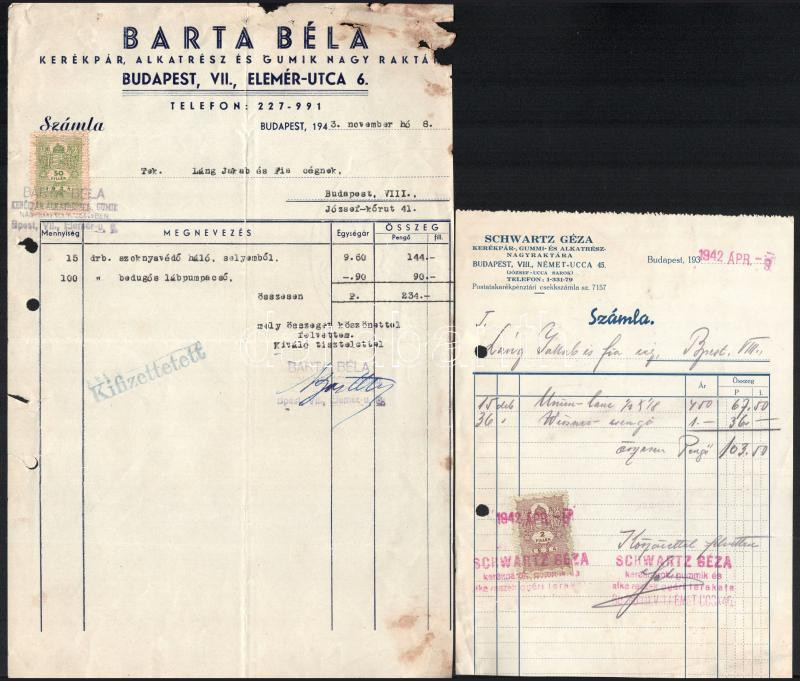 BARTA BÉLA
KERÉKPÁR, ALKATRÉSZ ÉS GUMIK NAGY RAKTÁRA
BUDAPEST, VII., ELEMÉR-UTCA 6.
TELEFON: 227-991
Számla
BUDAPEST, 1943. november hó 8.
50 FILLÉR
Tek. Láng Jakab és Fia cégnek,
Budapest, VIII.,
József-körut 41.
BARTA BÉLA
KERÉKPÁR, ALKATRÉSZEK, GUMIK
Bpest, VII., Elemér-u. 6.
Mennyiség MEGNEVEZÉS Egységár ÖSSZEG
Pengő fill.
15 drb. szoknyavédő háló, selyemből. 9.60 144.-
100 " bedugós lábpumpacső. -.90 90.-
összesen P. 234.-
mely összeget köszönettel
felvettem.
Kiváló tisztelettel
BARTA BÉLA
Bpest, VII., Elemér-u. 6.
Kifizettetett
SCHWARTZ GÉZA
KERÉKPÁR-, GUMMI- ÉS ALKATRÉSZ-
NAGYRAKTÁRA
BUDAPEST, VIII., NÉMET-UCCA 45.
(JÓZSEF-UCCA SAROK)
TELEFON: 1-331-79
Postatakarékpénztári csekkszámla sz. 7157
Budapest, 193 1942 ÁPR. - 9
Számla.
T.
Láng Jakab és fia cég, Bpest. VIII.,
Ár Összeg
P f.
15 drb lanc 1/2 X 1/8 4.50 67.50
36 " csengő 1.- 36.-
összesen Pengő 103.50
1942 ÁPR. - 9
2 FILLÉR
Köszönettel felvettem
SCHWARTZ GÉZA
kerékpárok, gummik és
alkatrészek gyári lerakata
SCHWARTZ GÉZA
kerékpárok, gummik és
alkatrészek gyári lerakata
BUDAPEST, VIII. NÉMET UCCA 45.